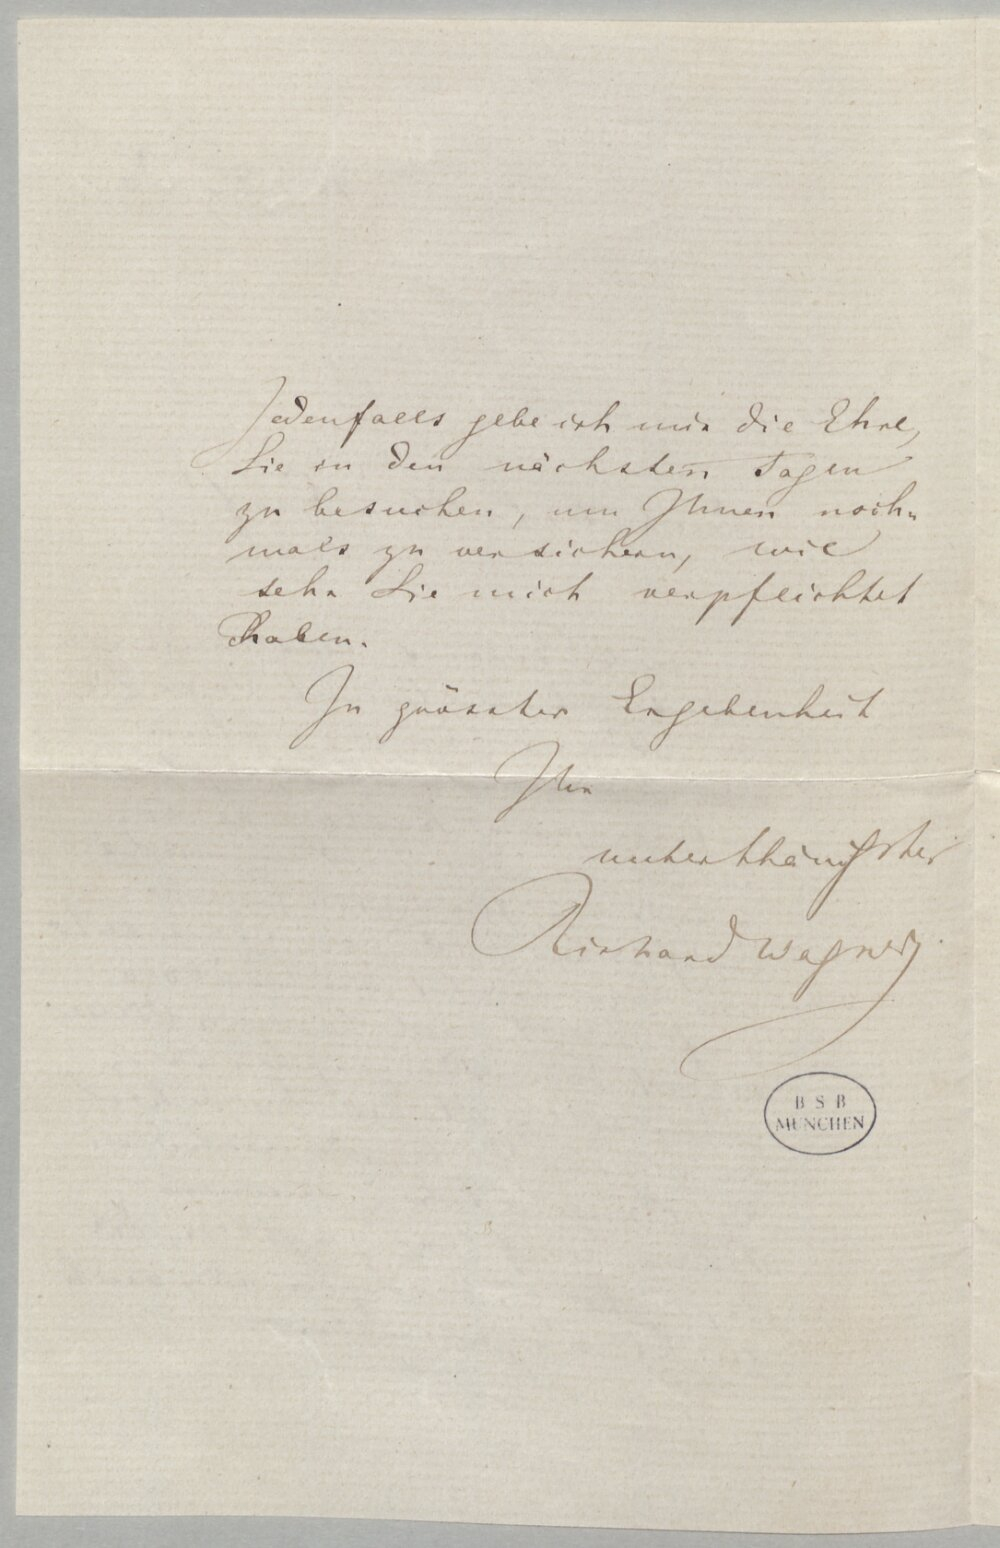 Jedenfalls gebe ich mir die Ehre,
Sie in den nächsten Tagen
zu besuchen, um Ihnen noch-
mals zu versichern, wie
sehr Sie mich verpflichtet
haben.
In grösster Ergebenheit
Ihr
unterthänigster
Richard Wagner
B S B
MÜNCHEN